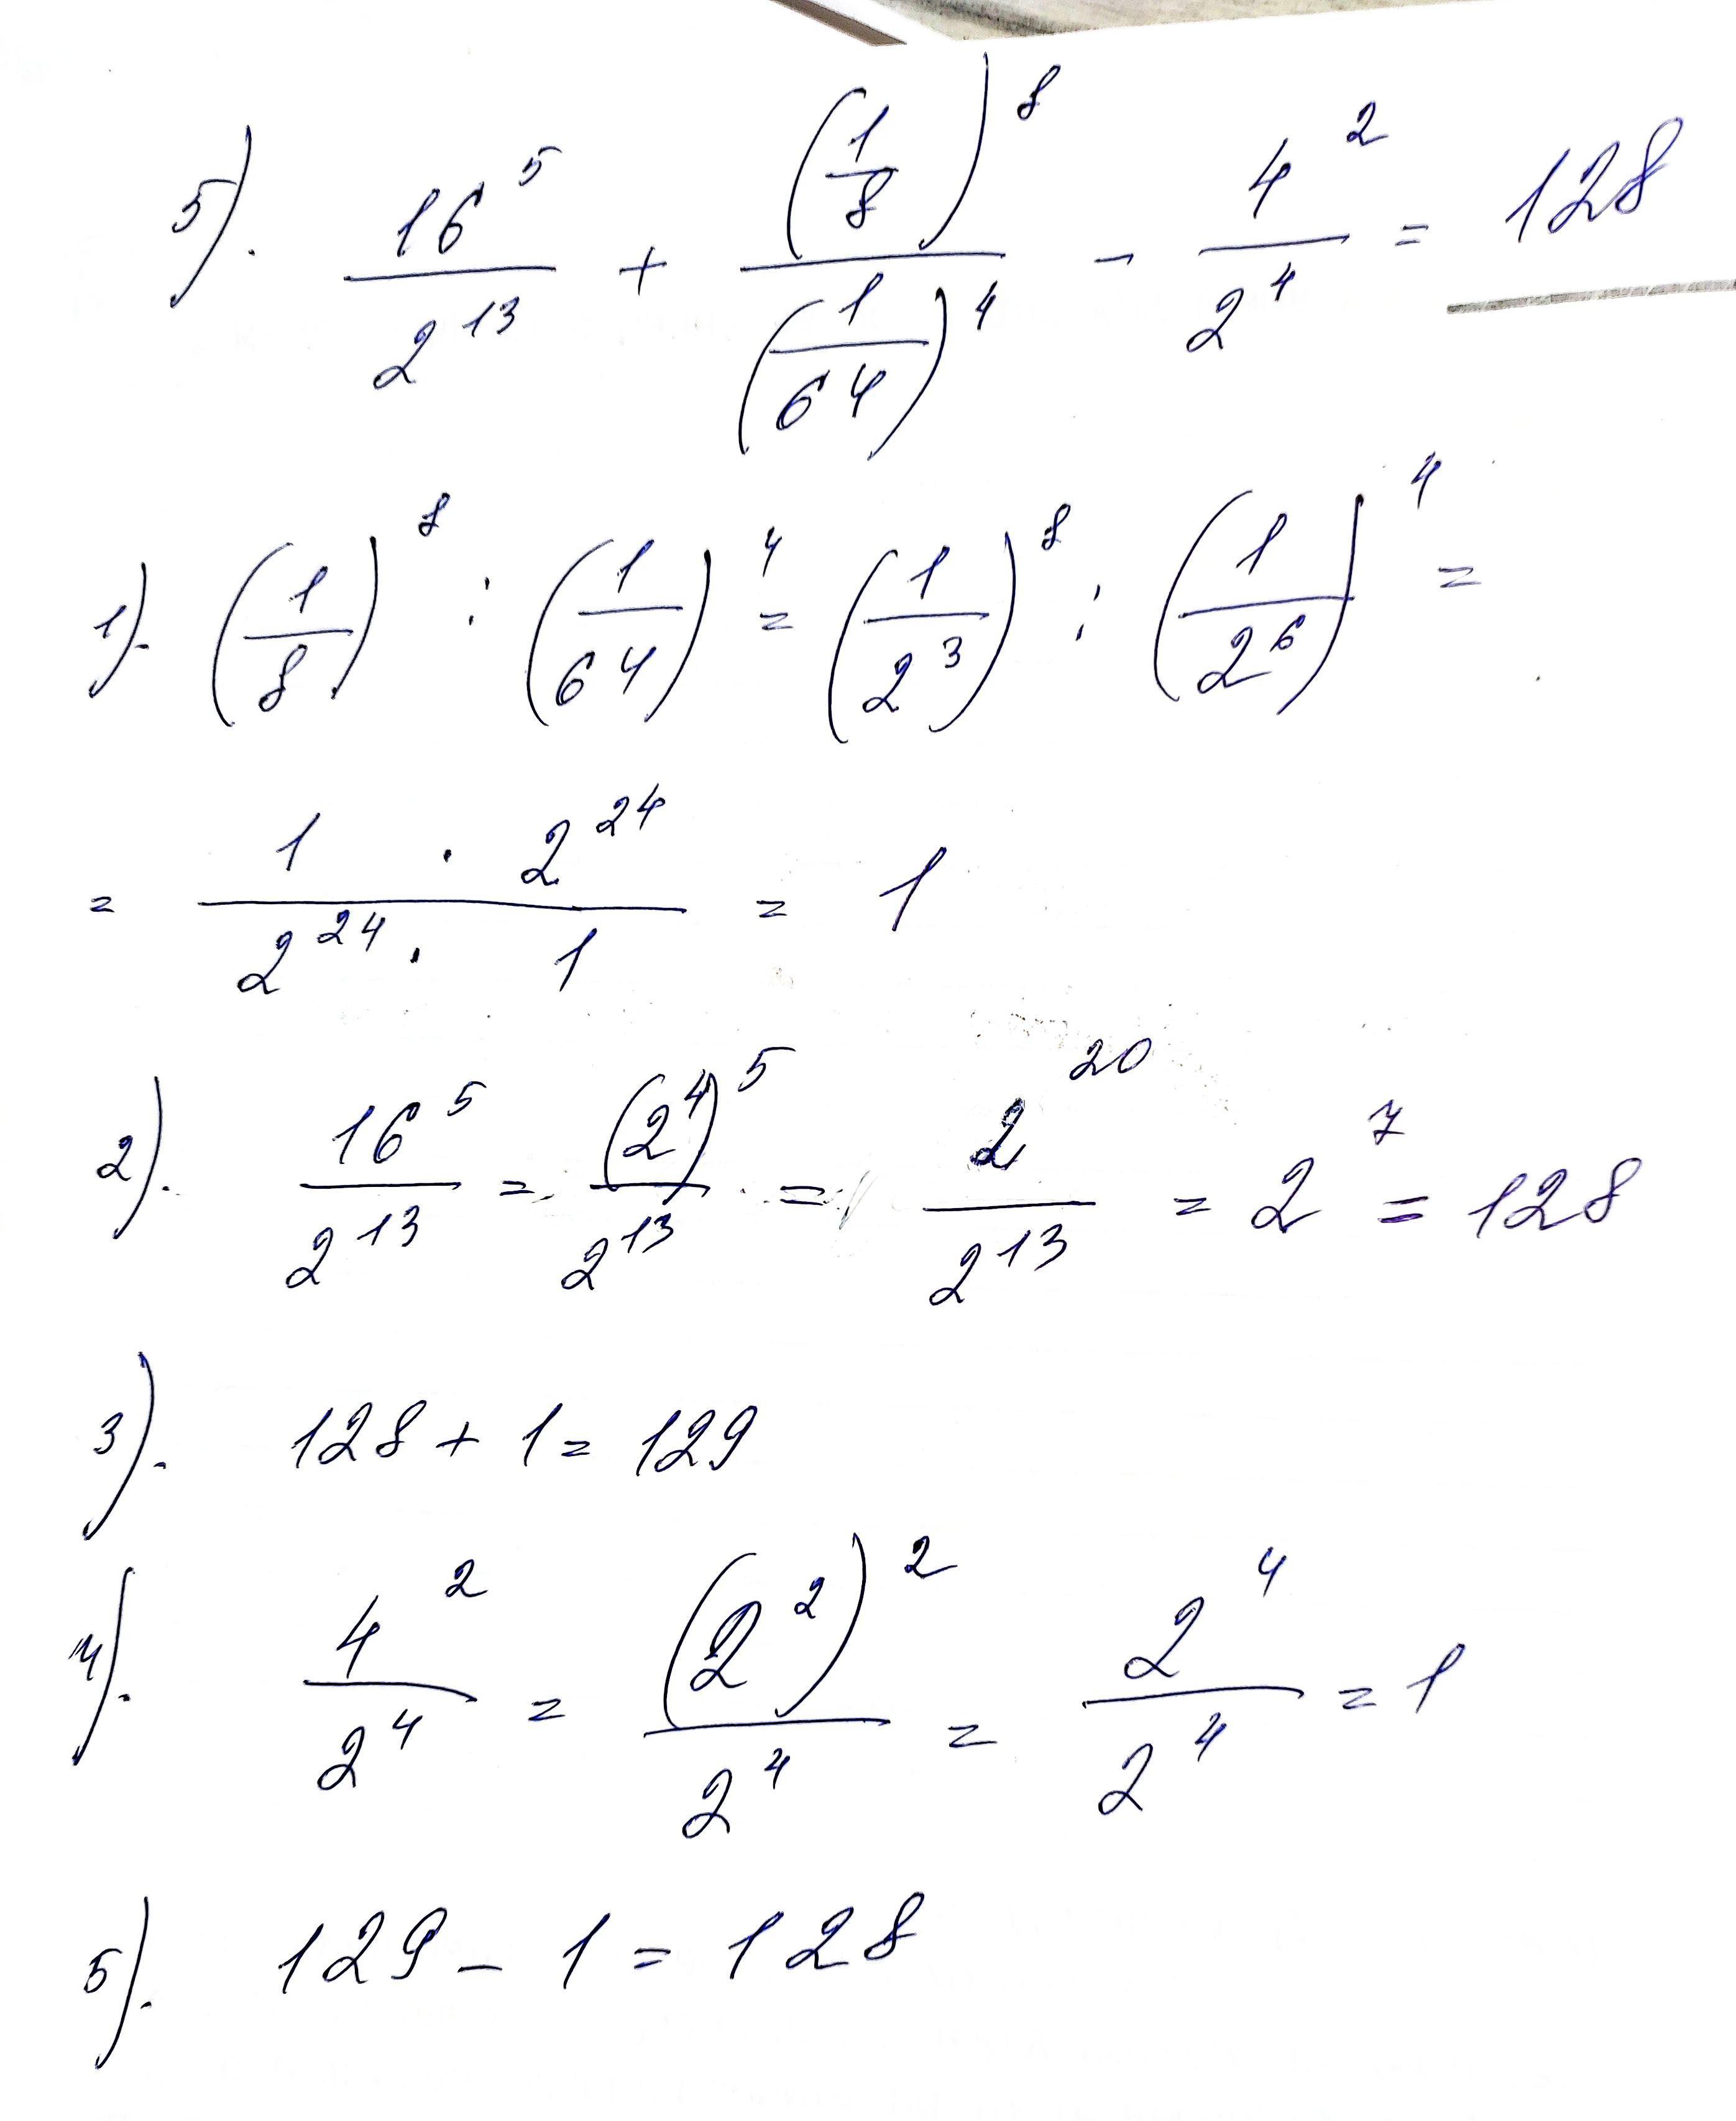 5). 16^5/2^13 + (1/8)^8/(1/64)^4 - 4^2/2^4 = 128
1). (1/8)^8 : (1/64)^4 = (1/2^3)^8 : (1/2^6)^4 =
= 1 · 2^24/2^24 · 1 = 1
2). 16^5/2^13 = (2^4)^5/2^13 = 2^20/2^13 = 2^7 = 128
3). 128 + 1 = 129
4). 4^2/2^4 = (2^2)^2/2^4 = 2^4/2^4 = 1
5). 129 - 1 = 128